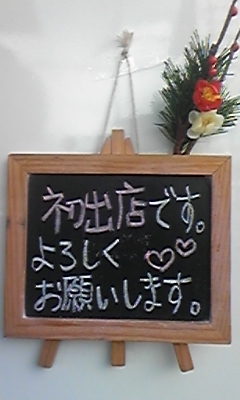 初出店です。
よろしく
お願いします。